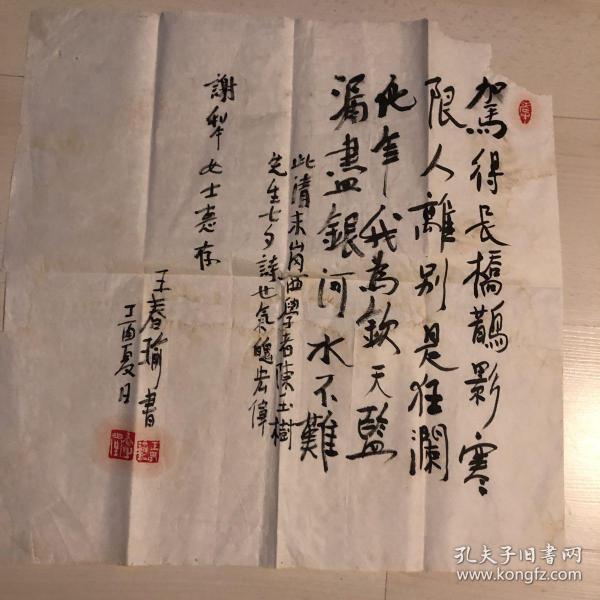 駕得長橋鵲影寒
限人離別是狂瀾
他年我為欽天監
漏盡銀河水不難
此清末崗西學者陳玉樹
先生七夕詩也氣魄宏偉
謝犂女士惠存
王春瑜書
丁酉夏日
孔夫子旧书网
www.kongfz.com